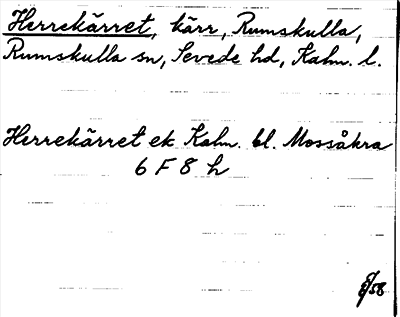 Herrekärret, kärr, Rumskulla,
Rumskulla sn, Sevede hd, Kalm. l.
Herrekärret ek Kalm. bl. Mossåkra
6 F 8 h